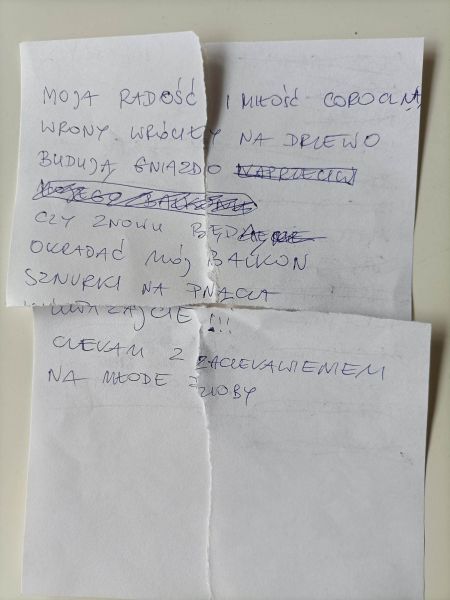 MOJA RADOŚĆ I MIŁOŚĆ COROCZNA
WRONY WRÓCIŁY NA DRZEWO
BUDUJĄ GNIAZDO NAPRZECIW
MOJEGO BALKONU
CZY ZNOWU BĘDĄ
OKRADAĆ MÓJ BALKON
SZNURKI NA PNĄCZA
UWAŻAJCIE !!!
CZEKAM Z ZACIEKAWIENIEM
NA MŁODE